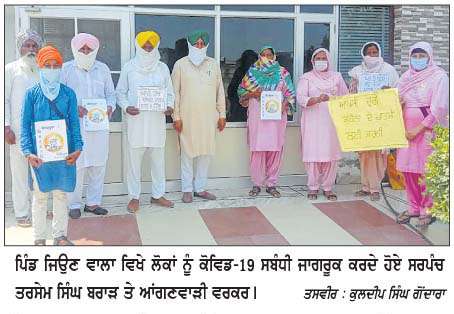 ਪਿੰਡ ਜਿਉਣ ਵਾਲਾ ਵਿਖੇ ਲੋਕਾਂ ਨੂੰ ਕੋਵਿਡ-19 ਸਬੰਧੀ ਜਾਗਰੂਕ ਕਰਦੇ ਹੋਏ ਸਰਪੰਚ
ਤਰਸੇਮ ਸਿੰਘ ਬਰਾੜ ਤੇ ਆਂਗਣਵਾੜੀ ਵਰਕਰ।
ਤਸਵੀਰ : ਕੁਲਦੀਪ ਸਿੰਘ ਗੋਂਦਾਰਾ